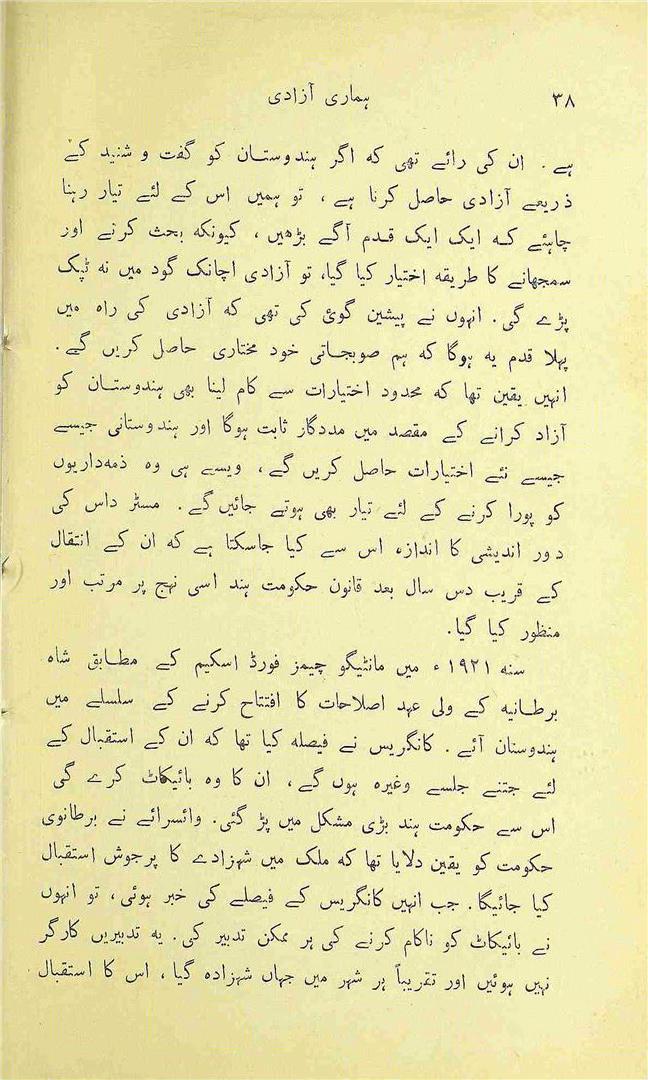 ۳۸ ہماری آزادی
ہے۔ ان کی رائے تھی کہ اگر ہندوستان کو گفت و شنید کے
ذریعے آزادی حاصل کرنا ہے، تو ہمیں اس کے لئے تیار رہنا
چاہئے کہ ایک ایک قدم آگے بڑھیں، کیونکہ بحث کرنے اور
سمجھانے کا طریقہ اختیار کیا گیا، تو آزادی اچانک گود میں نہ ٹپک
پڑے گی۔ انہوں نے پیشین گوئ کی تھی کہ آزادی کی راہ میں
پہلا قدم یہ ہوگا کہ ہم صوبجاتی خود مختاری حاصل کریں گے۔
انہیں یقین تھا کہ محدود اختیارات سے کام لینا بھی ہندوستان کو
آزاد کرانے کے مقصد میں مددگاز ثابت ہوگا اور ہندوستانی جیسے
جیسے نئے اختیارات حاصل کریں گے، ویسے ہی وہ ذمہداریوں
کو پورا کرنے کے لئے تیار بھی ہوتے جائیں گے۔ مسٹر داس کی
دور اندیشی کا اندازہ اس سے کیا جاسکتا ہے کہ ان کے انتقال
کے قریب دس سال بعد قانون حکومت ہند اسی نہج پر مرتب اور
منظور کیا گیا۔
سنہ ۱۹۲۱ء میں مانٹیگو چیمز فورڈ اسکیم کے مطابق شاہ
برطانیہ کے ولی عہد اصلاحات کا افتتاح کرنے کے سلسلے میں
ہندوستان آئے۔ کانگریس نے فیصلہ کیا تھا کہ ان کے استقبال کے
لئے جتنے جلسے وغیرہ ہوں گے، ان کا وہ بائیکاٹ کرے گی
اس سے حکومت ہند بڑی مشکل میں پڑ گئی۔ وائسرائے نے برطانوی
حکومت کو یقین دلایا تھا کہ ملک میں شہزادے کا پرجوش استقبال
کیا جائیگا۔ جب انہیں کانگریس کے فیصلے کی خبر ہوئی، تو انہوں
نے بائیکاٹ کو ناکام کرنے کی ہر ممکن تدبیر کی۔ یہ تدبیریں کارگر
نہیں ہوئیں اور تقریباً ہر شہر میں جہاں شہزادہ گیا، اس کا استقبال